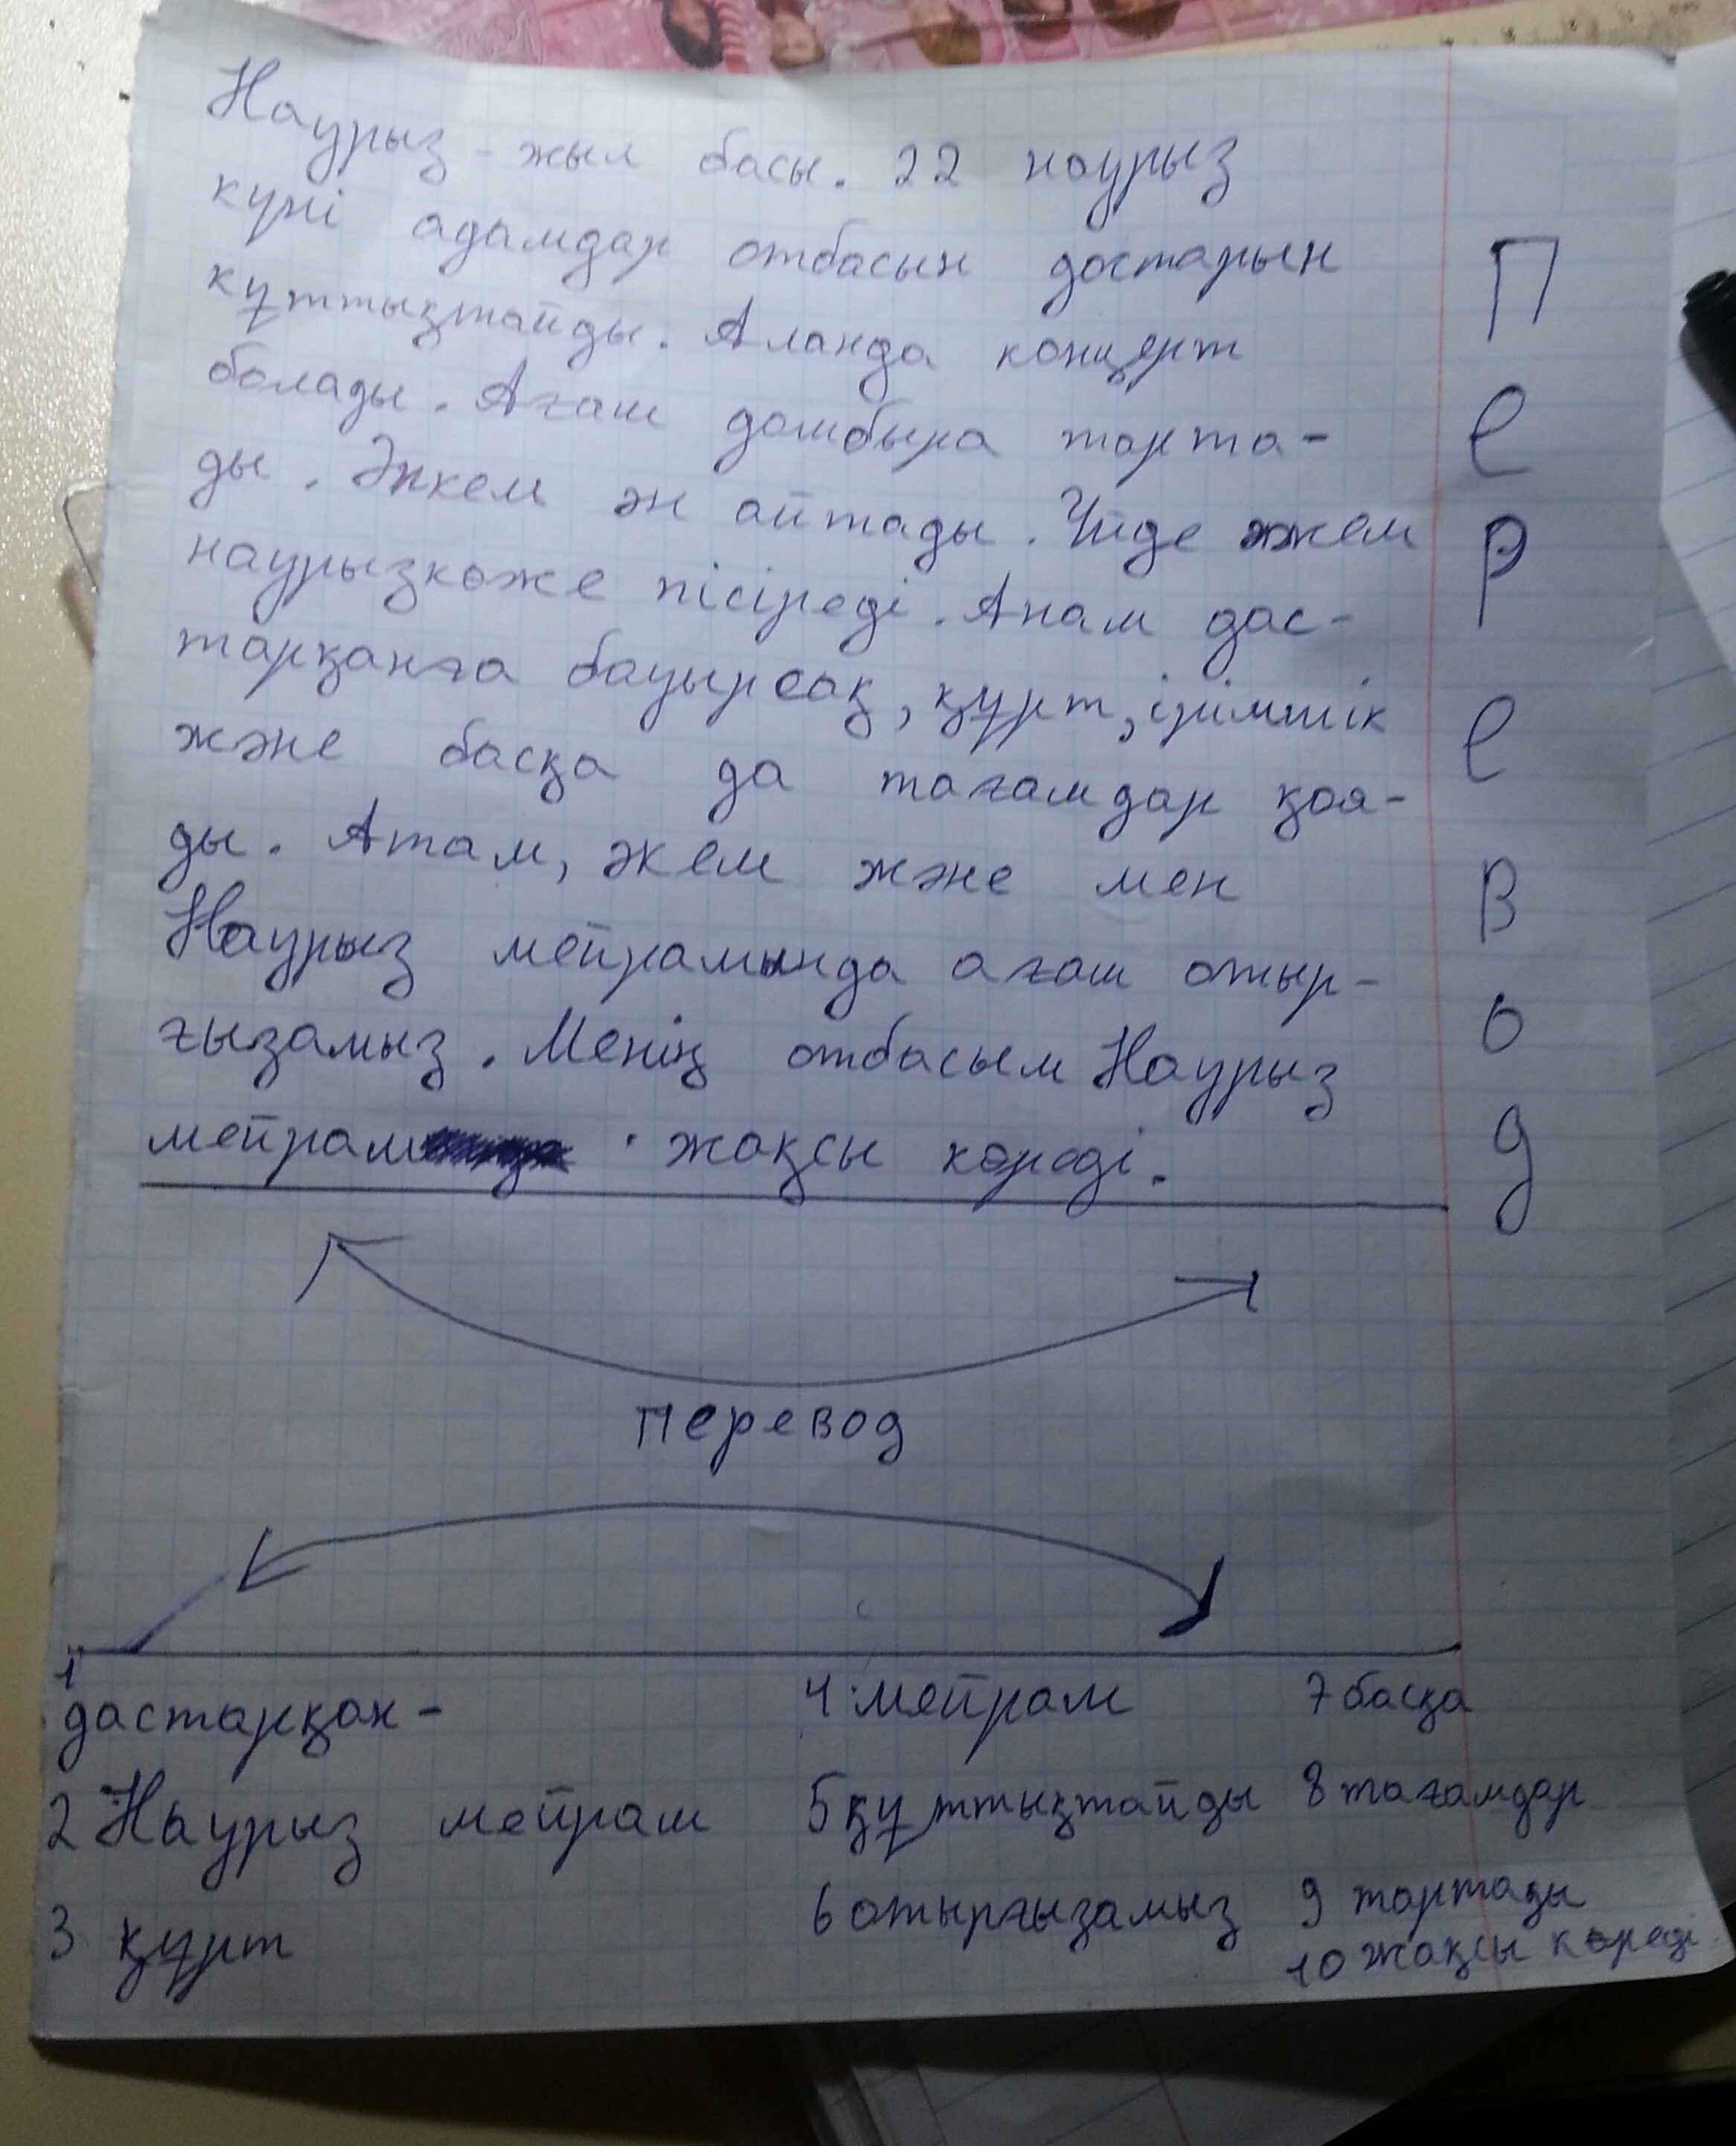 Наурыз - жыл басы. 22 наурыз
күні адамдар отбасын достарын
құттықтайды. Аланда концерт
болады. Ағаш домбыра тарта-
ды. Әпкем ән айтады. Үйде әжем
наурызкөже пісіреді. Анам дас-
тарқанға бауырсақ, құрт, ірімшік
және басқа да тағамдар қоя-
ды. Атам, әкем және мен
Наурыз мейрамында ағаш отыр-
ғызамыз. Менің отбасым Наурыз
мейрам жақсы көреді.
Перевод
перевод
1 дастарқан -
2 Наурыз мейрам
3 құрт
4 мейрам
5 құттықтайды
6 отырғызамыз
7 басқа
8 тағамдар
9 тартады
10 жақсы көреді